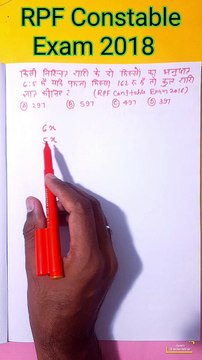 RPF Constable
Exam 2018
किसी निश्चित राशि के दो हिस्सों का अनुपात
6:5 है यदि पहला हिस्सा 162 है तो कुल राशि
ज्ञात कीजिए? (RPF Constable Exam 2018)
Ⓐ 297 Ⓑ 597 Ⓒ 497 Ⓓ 397
6x
5x